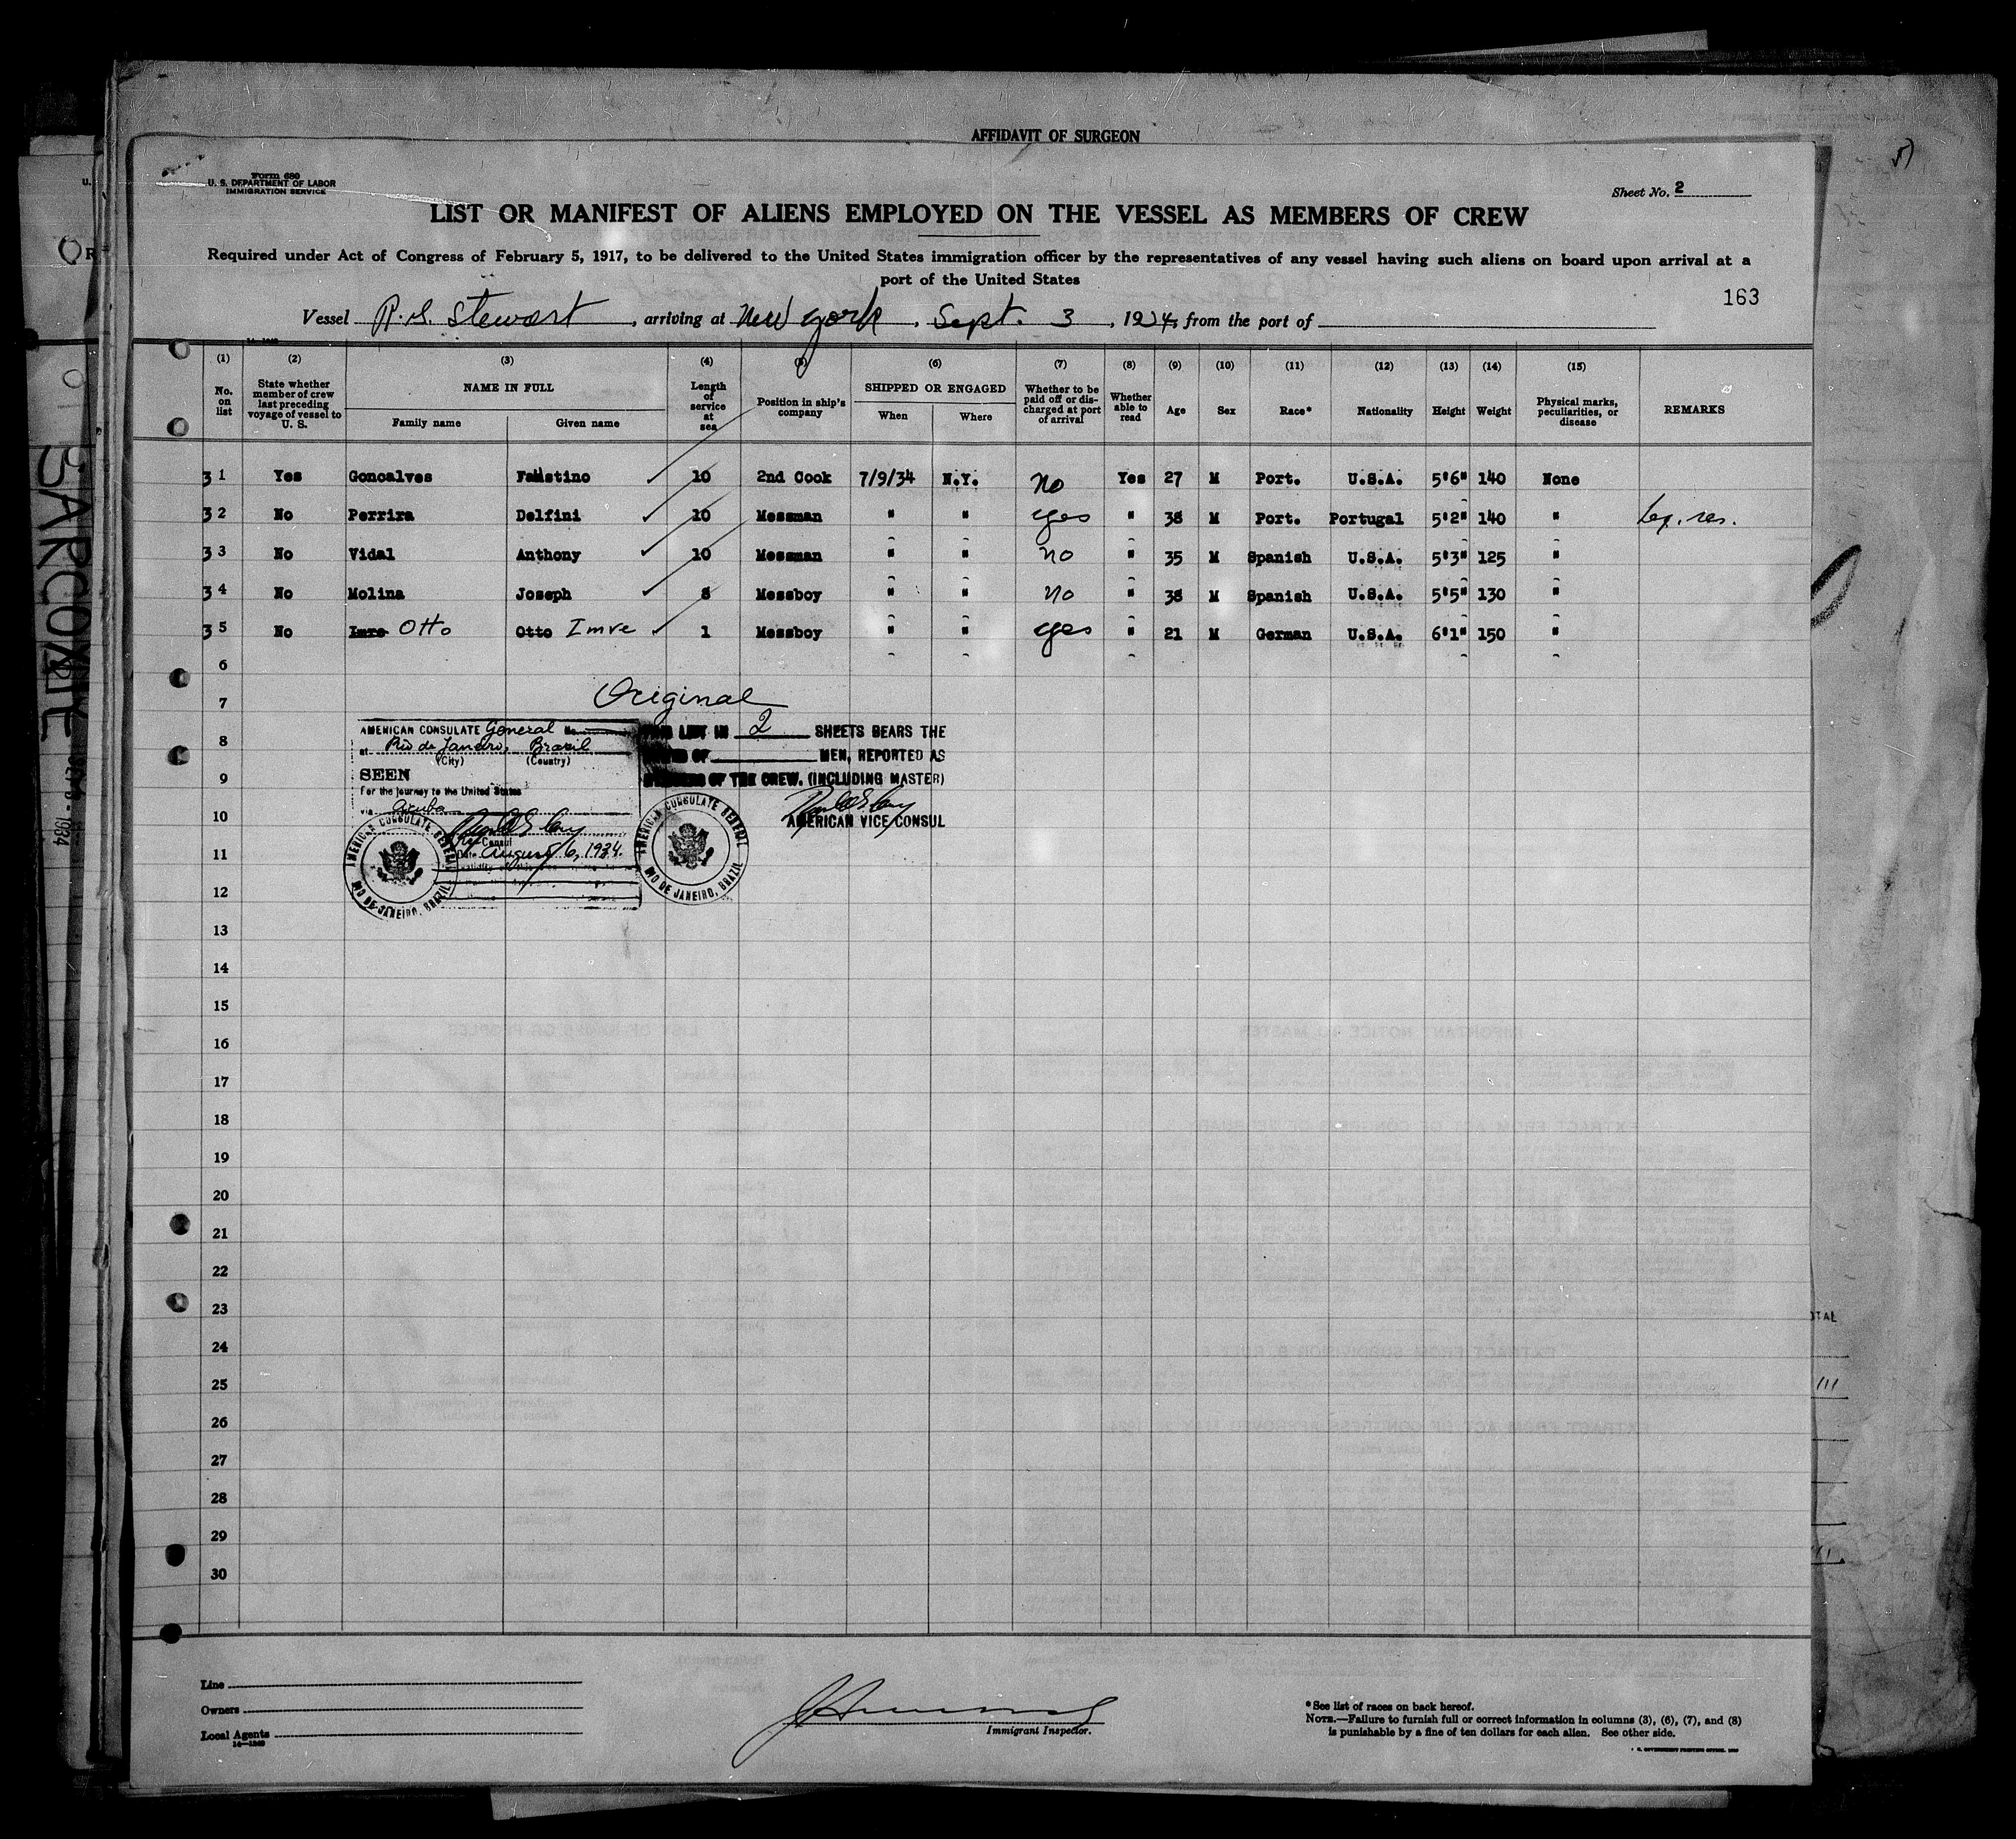 AFFIDAVIT OF SURGEON
Form 680
U. S. DEPARTMENT OF LABOR
IMMIGRATION SERVICE
Sheet No. 2
LIST OR MANIFEST OF ALIENS EMPLOYED ON THE VESSEL AS MEMBERS OF CREW
Required under Act of Congress of February 5, 1917, to be delivered to the United States immigration officer by the representatives of any vessel having such aliens on board upon arrival at a
port of the United States
163
Vessel R. S. Stewart, arriving at New York, Sept. 3, 1934, from the port of
(1) (2) (3) (4) (5) (6) (7) (8) (9) (10) (11) (12) (13) (14) (15)
No. on list State whether member of crew last preceding voyage of vessel to U. S. NAME IN FULL Family name Given name Length of service at sea Position in ship's company SHIPPED OR ENGAGED When Where Whether to be paid off or discharged at port of arrival Whether able to read Age Sex Race* Nationality Height Weight Physical marks, peculiarities, or disease REMARKS
31 Yes Goncalves Faustino 10 2nd Cook 7/9/34 N.Y. No Yes 27 M Port. U.S.A. 5'6" 140 None
32 No Perrira Delfini 10 Messman " " yes " 38 M Port. Portugal 5'2" 140 " Leg. res.
33 No Vidal Anthony 10 Messman " " no " 35 M Spanish U.S.A. 5'3" 125 "
34 No Molina Joseph 8 Messboy " " no " 38 M Spanish U.S.A. 5'5" 130 "
35 No Imre Otto Otto Imre 1 Messboy " " yes " 21 M German U.S.A. 6'1" 150 "
6
7 Original
8
9
10
11
12
AMERICAN CONSULATE General No.
at Rio de Janeiro, Brazil
(City) (Country)
SEEN
For the journey to the United States
via Aruba
Consul
Date August 6, 1934.
AMERICAN CONSULATE GENERAL
RIO DE JANEIRO, BRAZIL
THIS LIST IN 2 SHEETS BEARS THE
NAMES OF MEN, REPORTED AS
MEMBERS OF THE CREW. (INCLUDING MASTER)
AMERICAN VICE CONSUL
AMERICAN CONSULATE GENERAL
RIO DE JANEIRO, BRAZIL
13
14
15
16
17
18
19
20
21
22
23
24
25
26
27
28
29
30
Line
Owners
Local Agents
14—1240
Immigrant Inspector.
*See list of races on back hereof.
NOTE.—Failure to furnish full or correct information in columns (3), (6), (7), and (8)
is punishable by a fine of ten dollars for each alien. See other side.
U. S. GOVERNMENT PRINTING OFFICE
SARCOXIE